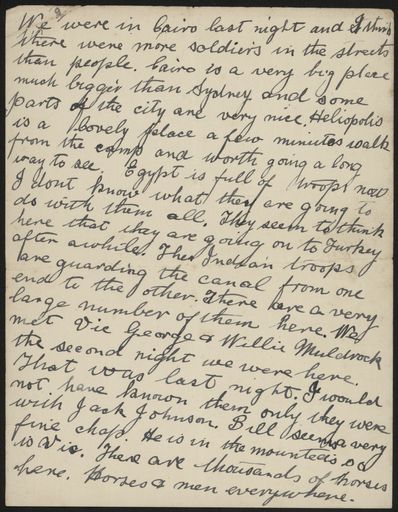 9/
We were in Cairo last night and I think
there were more soldiers in the streets
than people. Cairo is a very big place
much bigger than Sydney and some
parts of the city are very nice. Heliopolis
is a lovely place a few minutes walk
from the camp and worth going a long
way to see. Egypt is full of troops now
I dont know what they are going to
do with them all. They seem to think
here that they are going on to Turkey
after awhile. The Indian troops
are guarding the canal from one
end to the other. There are a very
large number of them here. We
met Vic George & Willie Muldrock
the second night we were here.
That was last night. I would
not have known them only they were
with Jack Johnson. Bill seems a very
fine chap. He is in the mounteds so
is Vic. There are thousands of horses
here. Horses & men everywhere.